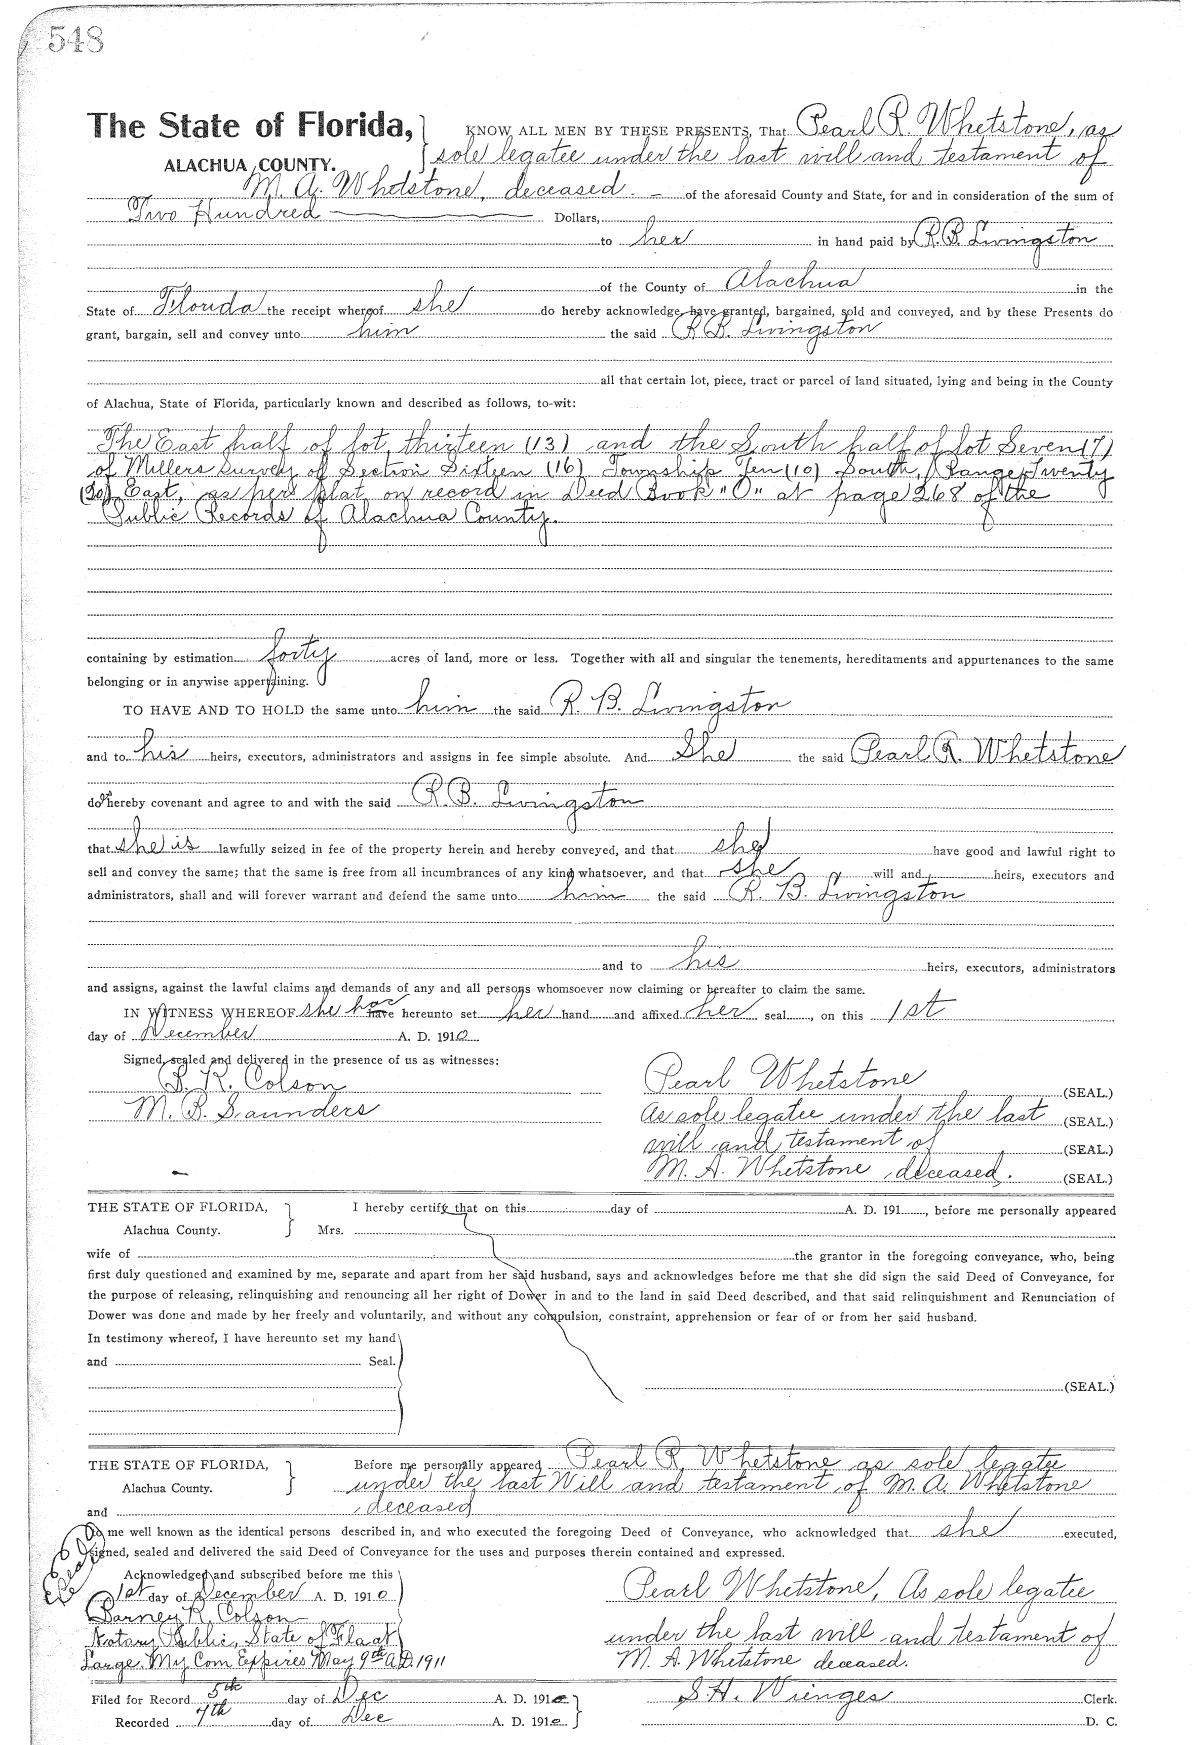 548
The State of Florida, KNOW ALL MEN BY THESE PRESENTS, That Pearl R. Whetstone, as
ALACHUA COUNTY. sole legatee under the last will and testament of
M. A. Whetstone, deceased. of the aforesaid County and State, for and in consideration of the sum of
Two Hundred Dollars,
to her in hand paid by R. B. Livingston
of the County of Alachua in the
State of Florida the receipt whereof she do hereby acknowledge, have granted, bargained, sold and conveyed, and by these Presents do
grant, bargain, sell and convey unto him the said R. B. Livingston
all that certain lot, piece, tract or parcel of land situated, lying and being in the County
of Alachua, State of Florida, particularly known and described as follows, to-wit:
The East half of lot thirteen (13) and the South half of lot Seven (7)
of Millers Survey of Section Sixteen (16) Township Ten (10) South, Range Twenty
(20) East, as per plat on record in Deed Book "O" at page 268 of the
Public Records of Alachua County.
containing by estimation forty acres of land, more or less. Together with all and singular the tenements, hereditaments and appurtenances to the same
belonging or in anywise appertaining.
TO HAVE AND TO HOLD the same unto him the said R. B. Livingston
and to his heirs, executors, administrators and assigns in fee simple absolute. And She the said Pearl R. Whetstone
does hereby covenant and agree to and with the said R. B. Livingston
that she is lawfully seized in fee of the property herein and hereby conveyed, and that she have good and lawful right to
sell and convey the same; that the same is free from all incumbrances of any kind whatsoever, and that she will and heirs, executors and
administrators, shall and will forever warrant and defend the same unto him the said R. B. Livingston
and to his heirs, executors, administrators
and assigns, against the lawful claims and demands of any and all persons whomsoever now claiming or hereafter to claim the same.
IN WITNESS WHEREOF she has have hereunto set her hand and affixed her seal, on this 1st
day of December A. D. 1910
Signed, sealed and delivered in the presence of us as witnesses:
B. R. Colson Pearl Whetstone (SEAL.)
M. B. Saunders As sole legatee under the last (SEAL.)
will and testament of (SEAL.)
M. A. Whetstone, deceased. (SEAL.)
THE STATE OF FLORIDA, I hereby certify that on this day of A. D. 191, before me personally appeared
Alachua County. Mrs.
wife of the grantor in the foregoing conveyance, who, being
first duly questioned and examined by me, separate and apart from her said husband, says and acknowledges before me that she did sign the said Deed of Conveyance, for
the purpose of releasing, relinquishing and renouncing all her right of Dower in and to the land in said Deed described, and that said relinquishment and Renunciation of
Dower was done and made by her freely and voluntarily, and without any compulsion, constraint, apprehension or fear of or from her said husband.
In testimony whereof, I have hereunto set my hand
and Seal.
(SEAL.)
THE STATE OF FLORIDA, Before me personally appeared Pearl R. Whetstone as sole legatee
Alachua County. under the last Will and testament of M. A. Whetstone
and deceased
To me well known as the identical persons described in, and who executed the foregoing Deed of Conveyance, who acknowledged that she executed,
signed, sealed and delivered the said Deed of Conveyance for the uses and purposes therein contained and expressed.
Seal
Acknowledged and subscribed before me this
1st day of December A. D. 1910 Pearl Whetstone, As sole legatee
Barney R. Colson
Notary Public, State of Fla at under the last will and testament of
Large. My Com Expires May 9th A.D. 1911 M. A. Whetstone deceased.
Filed for Record 5th day of Dec A. D. 1910 S. H. Wienges Clerk.
Recorded 7th day of Dec A. D. 1910 D. C.